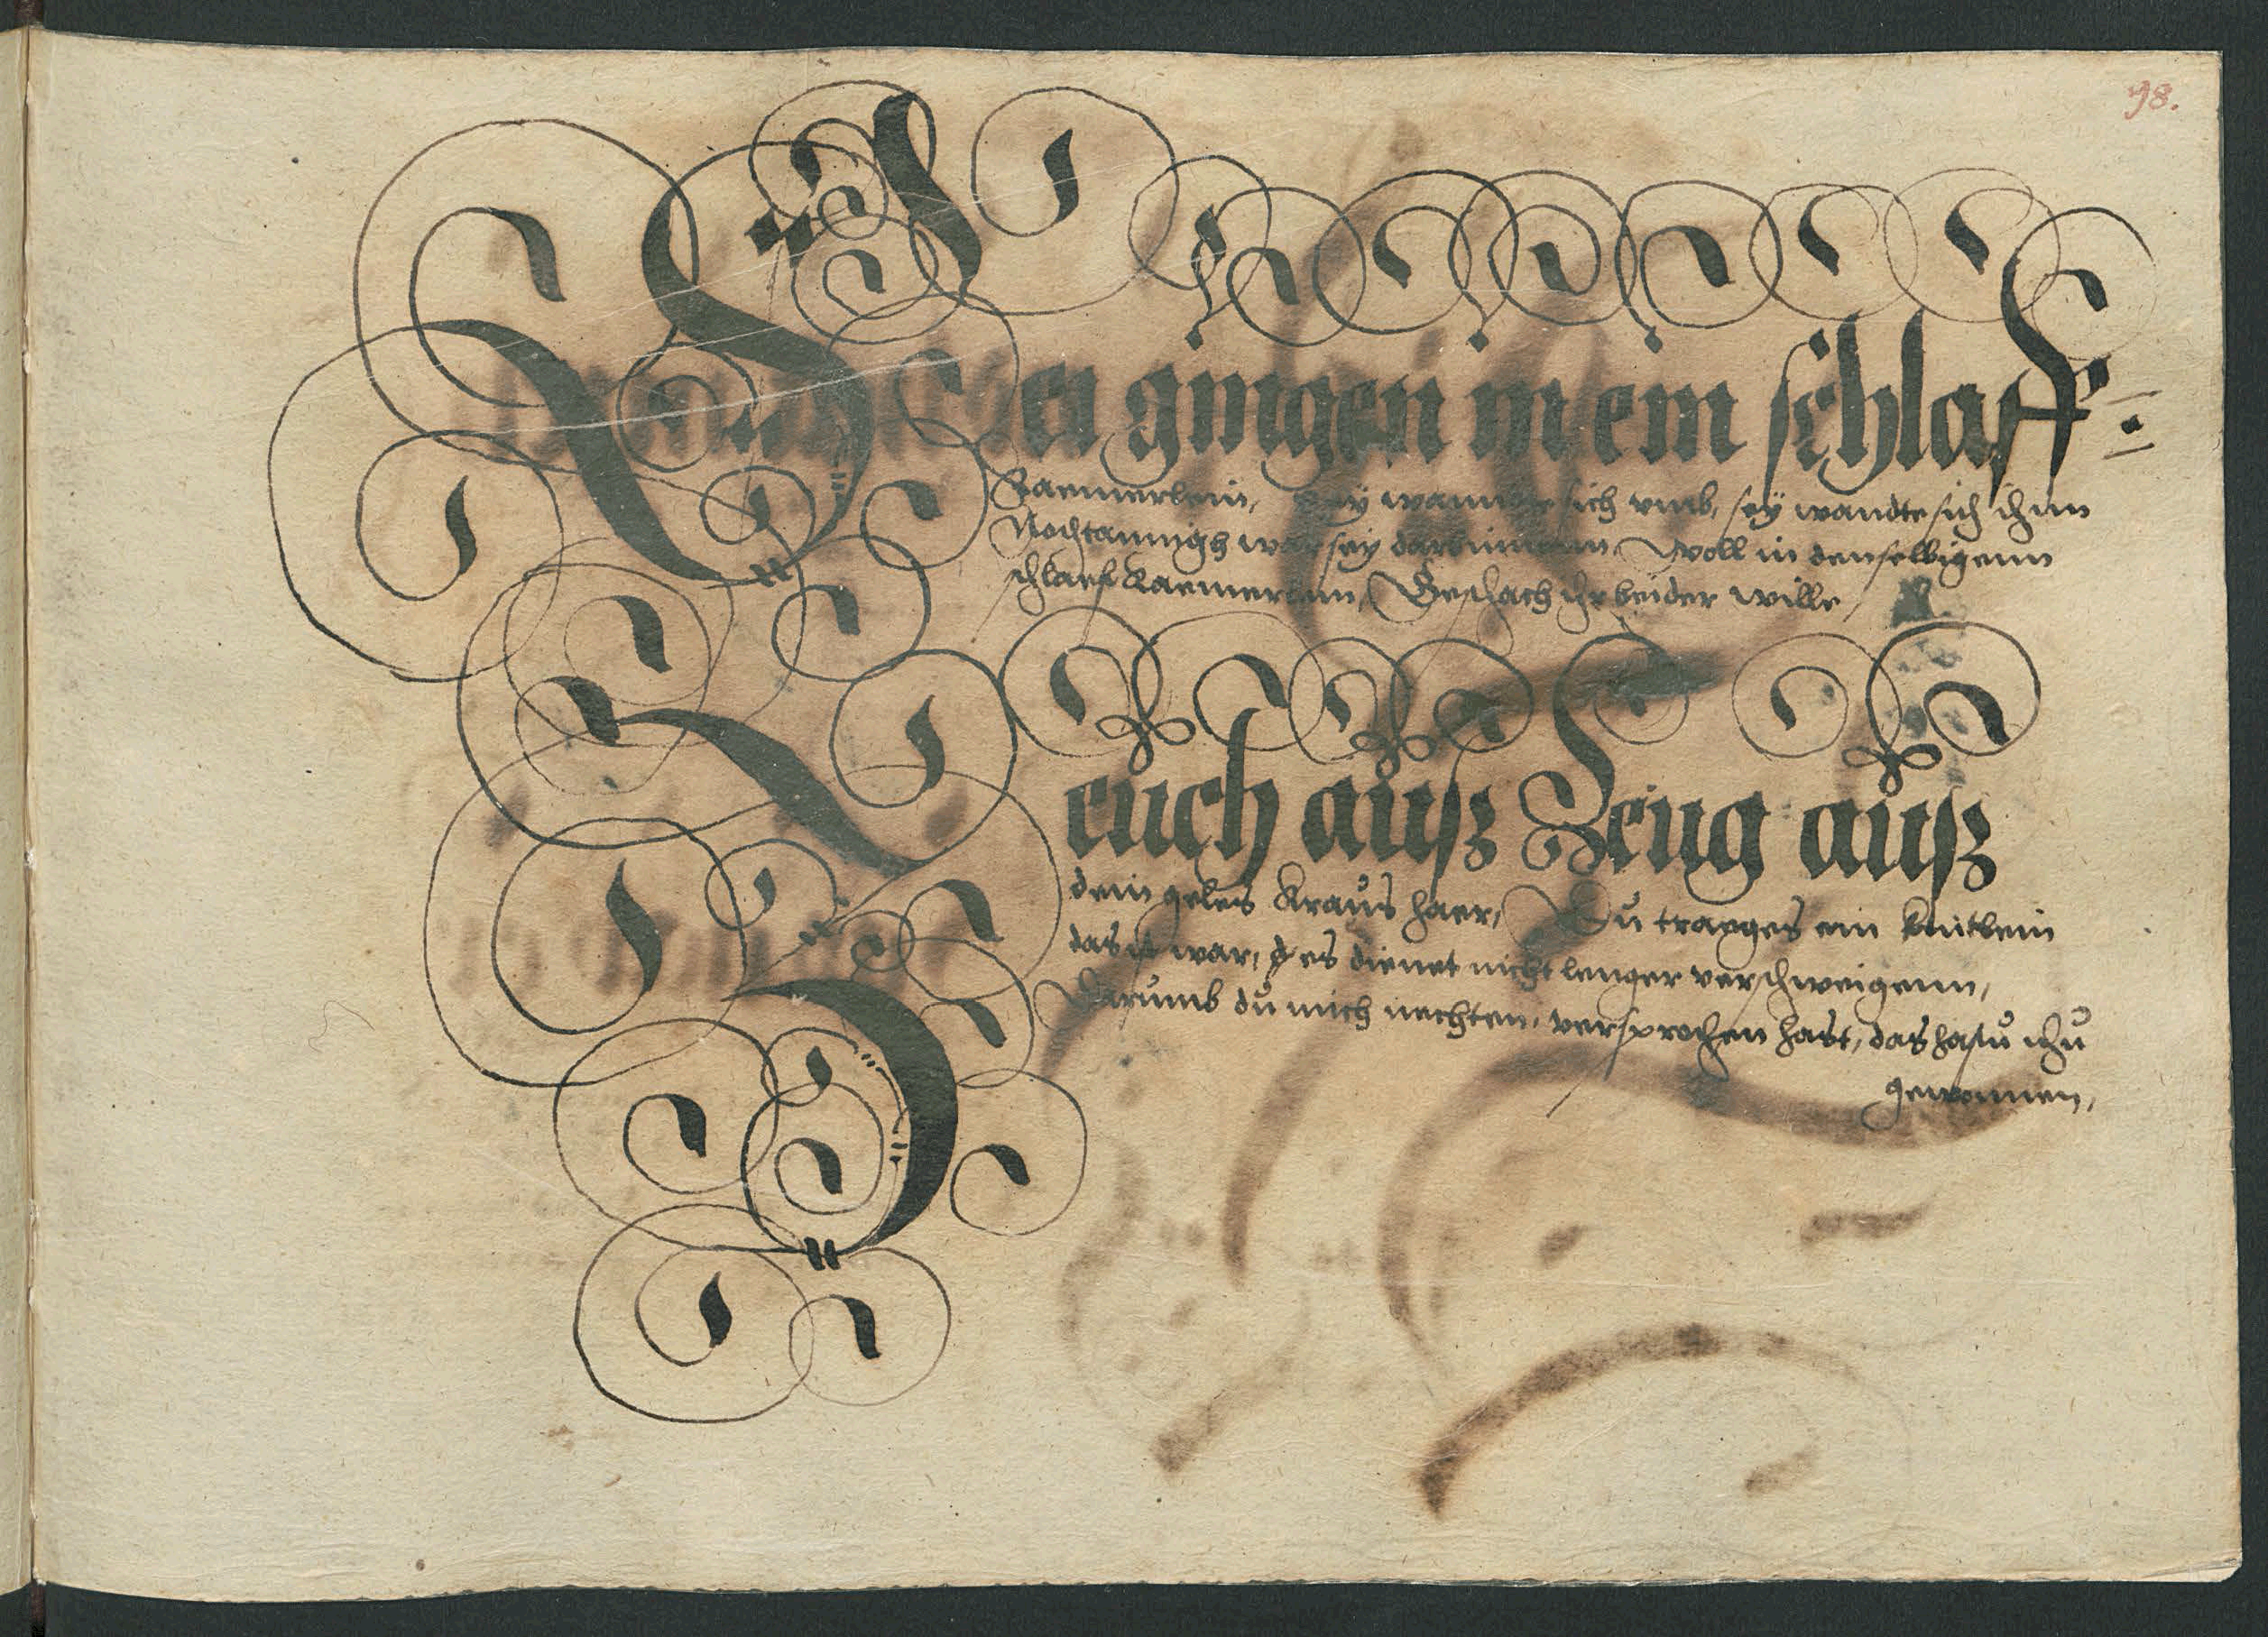 98.
Sei gingen in ein schlaff=
Kaemerlein, Sey wandte sich vmb, sey wandte sich ihm
Nochtannigh war sey darinnenn, Woll in denselbigenn
schlaeff Kaemerlein, Geschach ihr beider wille,
Zeuch auß Zeug auß
dein geles Kraus haer, Du traeges ein Kintlein
das ist war, es dienet nicht lenger verschweigenn,
Darumb du mich nechten, versprochen hast, das hastu ihu
gewonnen,